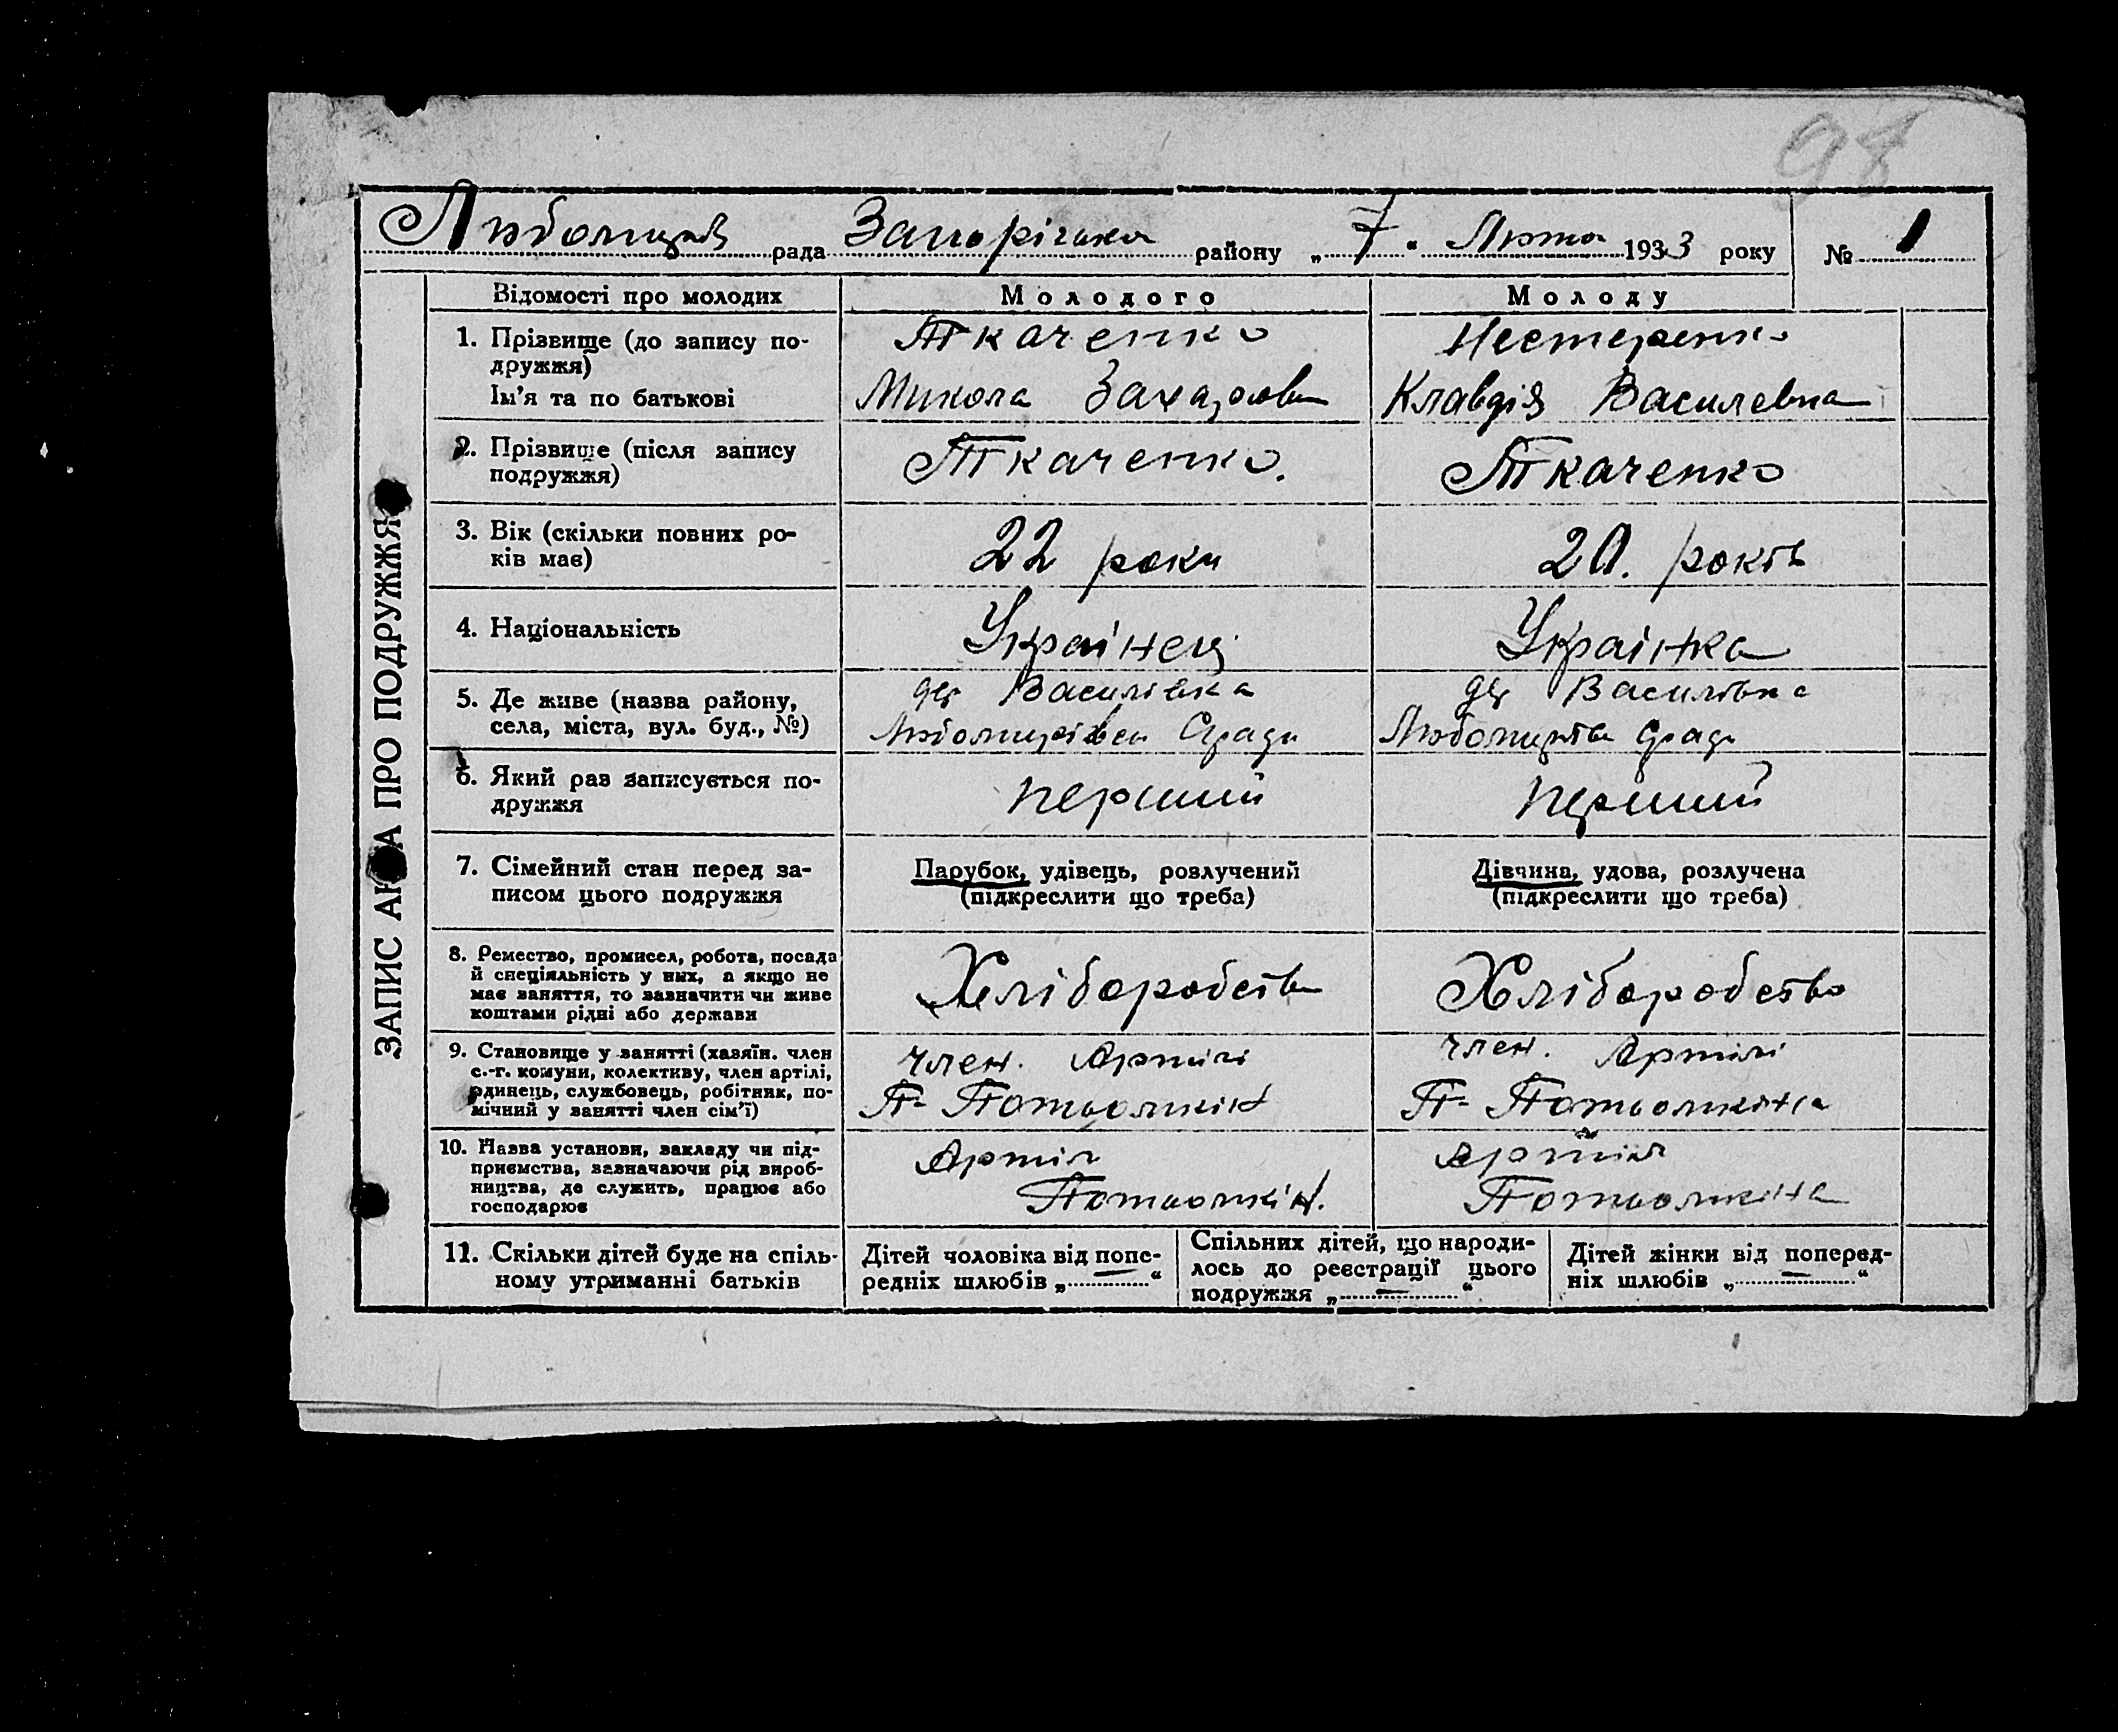 98
рада Запорізька району „ 7 “ Лютого 1933 року № 1
ЗАПИС АКТА ПРО ПОДРУЖЖЯ
Відомості про молодих Молодого Молоду
1. Прізвище (до запису по-
дружжя)
Ім’я та по батькові
Ткаченко
Микола
Нестеренко
Клавдія Василевна
2. Прізвище (після запису
подружжя)
Ткаченко.
Ткаченко
3. Вік (скільки повних ро-
ків має)
22 роки
20. років
4. Національність
Українец
Українка
5. Де живе (назва району,
села, міста, вул. буд., №)
Василівка
Василівка
6. Який раз записується по-
дружжя
перший
перший
7. Сімейний стан перед за-
писом цього подружжя
Парубок, удівець, розлучений
(підкреслити що треба)
Дівчина, удова, розлучена
(підкреслити що треба)
8. Ремество, промисел, робота, посада
й спеціяльність у них, а якщо не
має заняття, то зазначити чи живе
коштами рідні або держави
Хліборобство
Хліборобство
9. Становище у занятті (хазяїн. член
с.-г. комуни, колективу, член артілі,
одинець, службовець, робітник, по-
мічний у занятті член сім’ї)
член. Артілі
П- Потьомкін
член. Артілі
П- Потьомкіна
10. Назва установи, закладу чи під-
приємства, зазначаючи рід вироб-
ництва, де служить, працює або
господарює
Артіл
Потьомкін.
Артіл
Потьомкіна
11. Скільки дітей буде на спіль-
ному утриманні батьків
Дітей чоловіка від попе-
редніх шлюбів „ — “
Спільних дітей, що народи-
лось до реєстрації цього
подружжя „ — “
Дітей жінки від поперед-
ніх шлюбів „ — “